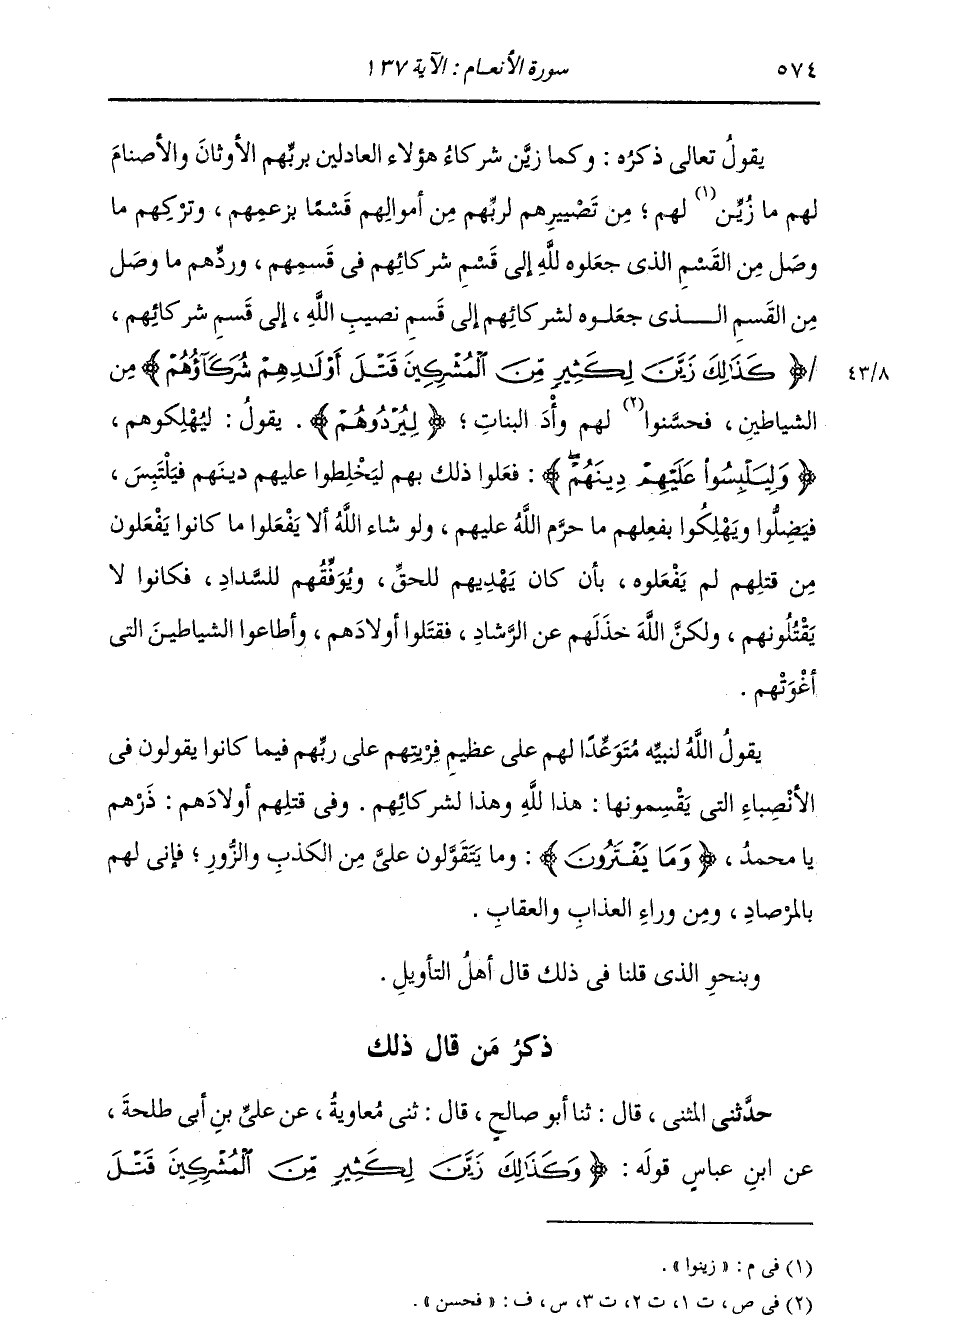 ٥٧٤ سورة الأنعام : الآية ١٣٧
يقولُ تعالى ذكرُه : وكما زيَّن شركاءُ هؤلاء العادلين بربِّهم الأوثانَ والأصنامَ
لهم ما زُيِّن(١) لهم ؛ مِن تَصْييرِهم لربِّهم مِن أموالِهم قَسْمًا بزعمِهم ، وتركِهم ما
وصَل مِن القَسْمِ الذى جعَلوه للَّهِ إلى قَسْمِ شركائِهم فى قسمِهم ، وردِّهم ما وصَل
مِن القَسمِ الـــذى جعَلــوه لشركائِهم إلى قَسمِ نصيبِ اللَّهِ ، إلى قَسمِ شركائِهم ،
٤٣/٨ /﴿ كَذَٰلِكَ زَيَّنَ لِكَثِيرٍ مِّنَ الْمُشْرِكِينَ قَتْلَ أَوْلَٰدِهِمْ شُرَكَآؤُهُمْ ﴾ مِن
الشياطينِ ، فحسَّنوا(٢) لهم وأْدَ البناتِ ؛ ﴿ لِيُرْدُوهُمْ ﴾ . يقولُ : ليُهْلِكوهم ،
﴿ وَلِيَلْبِسُوا۟ عَلَيْهِمْ دِينَهُمْۖ ﴾ : فعَلوا ذلك بهم ليَخْلِطوا عليهم دينَهم فيَلْتَبِسَ ،
فيَضِلُّوا ويَهْلِكُوا بفعلِهم ما حرَّم اللَّهُ عليهم ، ولو شاء اللَّهُ ألا يَفْعَلوا ما كانوا يَفْعَلون
مِن قتلِهم لم يَفْعَلوه ، بأن كان يَهْدِيهم للحقِّ ، ويُوَفِّقُهم للسَّدادِ ، فكانوا لا
يَقْتُلُونهم ، ولكنَّ اللَّهَ خذَلَهم عن الرَّشادِ ، فقتَلوا أولادَهم ، وأطاعوا الشياطينَ التى
أغْوَتْهم .
يقولُ اللَّهُ لنبيِّه مُتَوَعِّدًا لهم على عظيمِ فِرْيتِهم على ربِّهم فيما كانوا يقولون فى
الأنْصِباءِ التى يَقْسِمونها : هذا للَّهِ وهذا لشركائِهم . وفى قتلِهم أولادَهم : ذَرْهم
يا محمدُ ، ﴿ وَمَا يَفْتَرُونَ ﴾ : وما يَتَقَوَّلون علىَّ مِن الكذبِ والزُّورِ ؛ فإنى لهم
بالمرْصادِ ، ومِن وراءِ العذابِ والعقابِ .
وبنحوِ الذى قلنا فى ذلك قال أهلُ التأويلِ .
ذكرُ مَن قال ذلك
حدَّثنى المثنى ، قال : ثنا أبو صالحٍ ، قال : ثنى مُعاويةُ ، عن علىِّ بنِ أبى طلحةَ ،
عن ابنِ عباسٍ قولَه : ﴿ وَكَذَٰلِكَ زَيَّنَ لِكَثِيرٍ مِّنَ الْمُشْرِكِينَ قَتْلَ
(١) فى م : « زينوا » .
(٢) فى ص ، ت ١، ت ٢، ت ٣، س ، ف : « فحسن » .